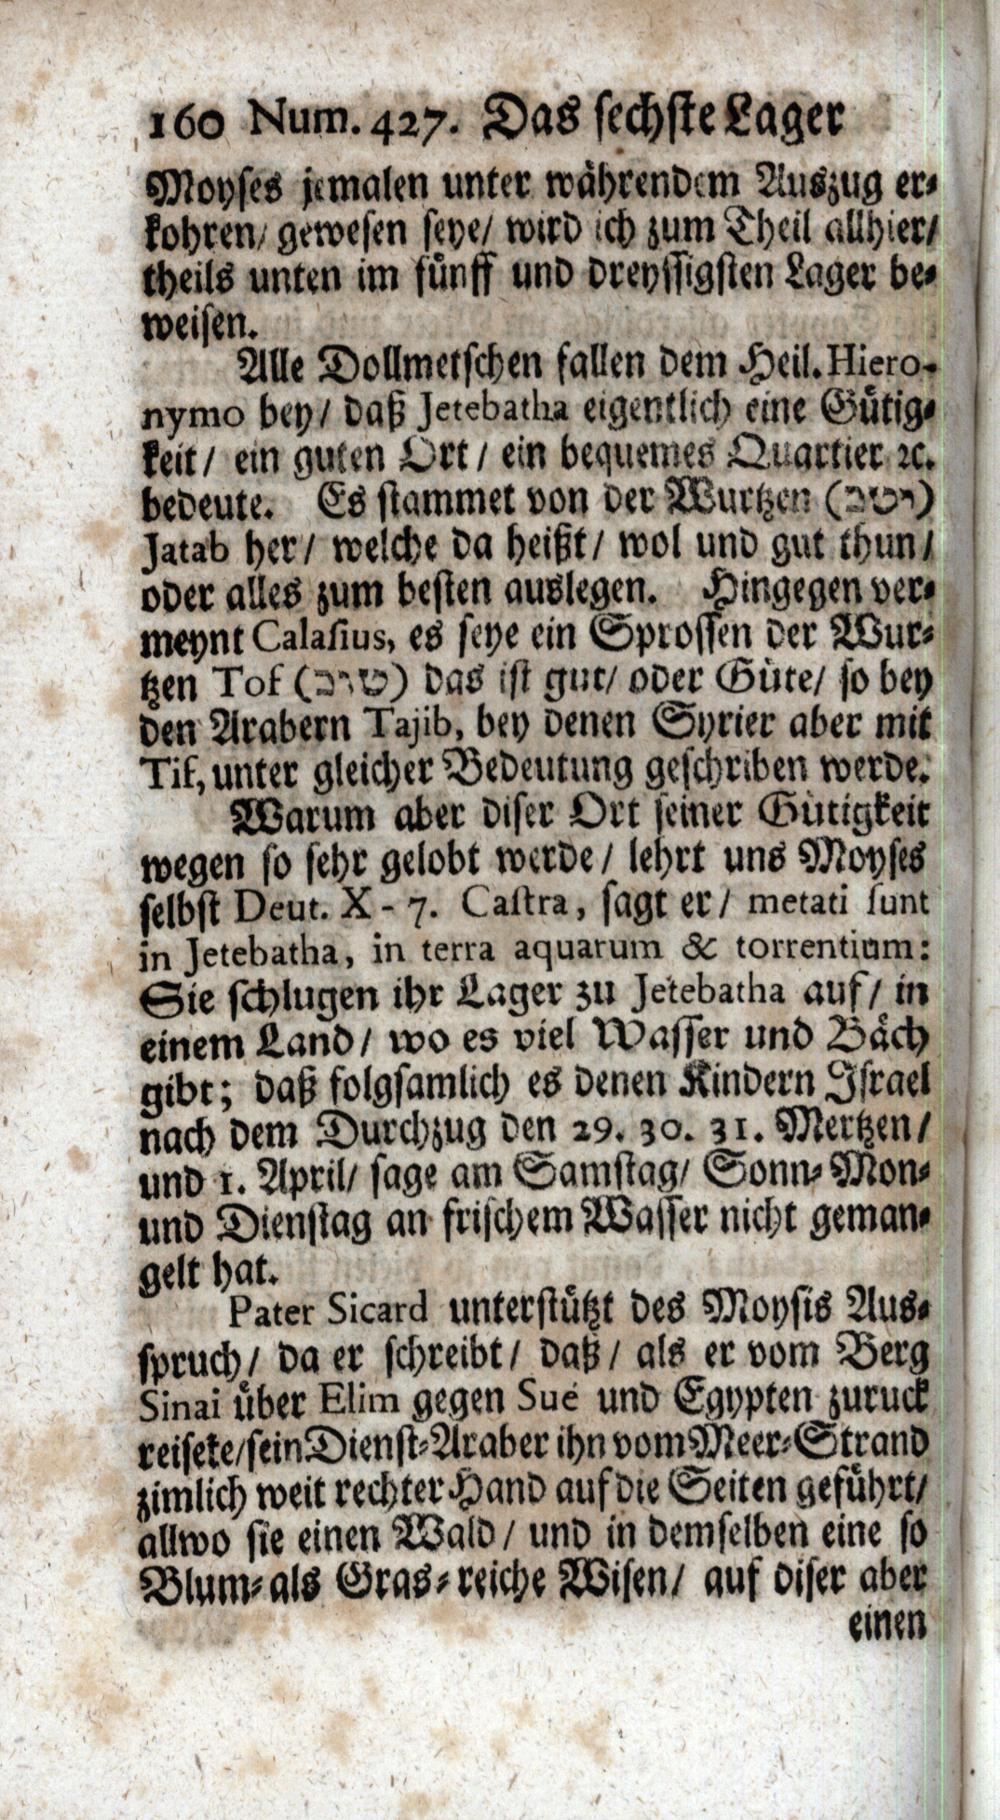 160 Num. 427. Das sechste Lager
Moyses jemalen unter währendem Auszug er-
kohren/ gewesen seye/ wird ich zum Theil allhier/
theils unten im fünff und dreyssigsten Lager be-
weisen.
Alle Dollmetschen fallen dem Heil. Hiero-
nymo bey/ daß Jetebatha eigentlich eine Gütig-
keit/ ein guten Ort/ ein bequemes Quartier ꝛc.
bedeute. Es stammet von der Wurtzen (יטב)
Jatab her/ welche da heißt/ wol und gut thun/
oder alles zum besten auslegen. Hingegen ver-
meynt Calasius, es seye ein Sprossen der Wur-
tzen Tof (טוב) das ist gut/ oder Güte/ so bey
den Arabern Tajib, bey denen Syrier aber mit
Tif, unter gleicher Bedeutung geschriben werde.
Warum aber diser Ort seiner Gütigkeit
wegen so sehr gelobt werde/ lehrt uns Moyses
selbst Deut. X - 7. Castra, sagt er/ metati sunt
in Jetebatha, in terra aquarum & torrentium:
Sie schlugen ihr Lager zu Jetebatha auf/ in
einem Land/ wo es viel Wasser und Bäch
gibt; daß folgsamlich es denen Kindern Israel
nach dem Durchzug den 29. 30. 31. Mertzen/
und 1. April/ sage am Samstag/ Sonn- Mon-
und Dienstag an frischem Wasser nicht geman-
gelt hat.
Pater Sicard unterstützt des Moysis Aus-
spruch/ da er schreibt/ daß/ als er vom Berg
Sinai über Elim gegen Sué und Egypten zuruck
reisete/ sein Dienst-Araber ihn vom Meer-Strand
zimlich weit rechter Hand auf die Seiten geführt/
allwo sie einen Wald/ und in demselben eine so
Blum- als Gras-reiche Wisen/ auf diser aber
einen